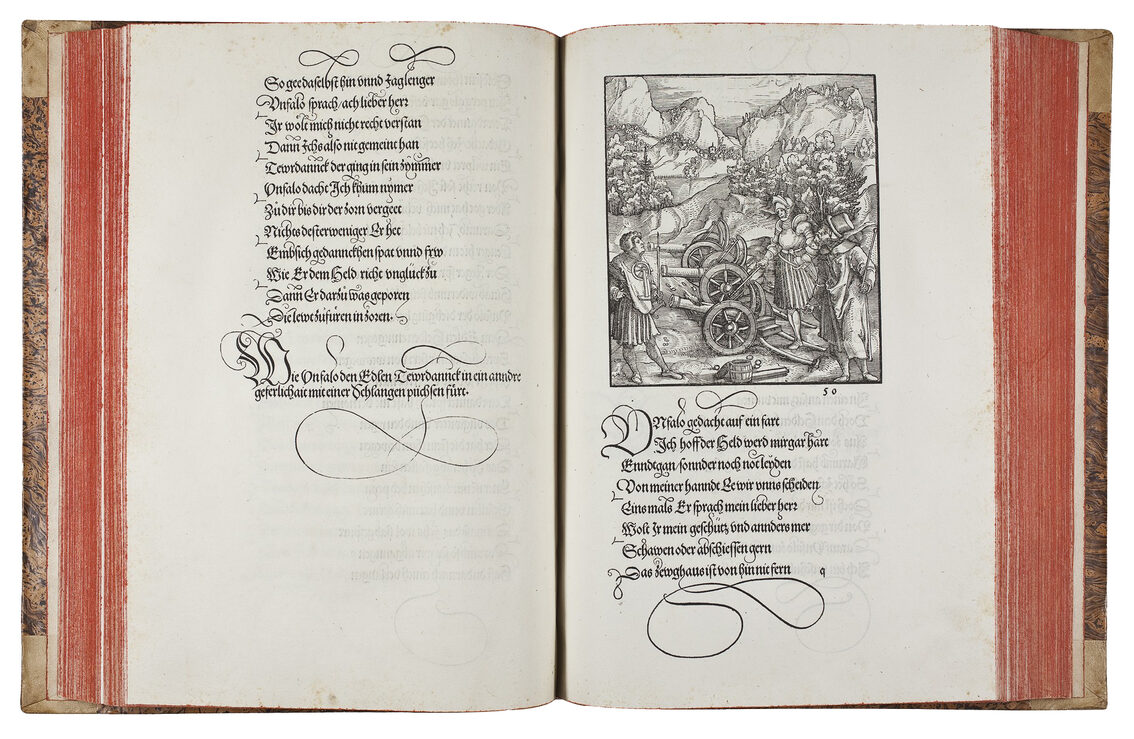 So gee daselbst hin vnnd zag lenger
Vnfalo sprach/ach lieber herr
Ir wolt mich nicht recht verstan
Dann Ichs also nit gemeint han
Tewrdannck der ging in sein zymmer
Vnfalo dacht Ich khum nymer
Zu dir bis dir der zorn vergeet
Nichts desterweniger Er het
Embsich gedannckhen spat vnnd frw
Wie Er dem Held richt vnglück zu
Dann Er darzu was geporen
Die lewt zufüren in zoren.
Wie Vnfalo den Edlen Tewrdannck in ein anndre
geferlichait mit einer Schlangen püchsen fürt.
50
VNfalo gedacht auf ein fart
Ich hoff der Held werd mir gar hart
Enndtgan/sonnder noch not leyden
Von meiner hanndt Ee wir vnns scheiden
Eins mals Er sprach mein lieber herr
Wolt Ir mein geschütz vnd annders mer
Schawen oder abschiessen gern
Das zewghaus ist von hin nit fern
q